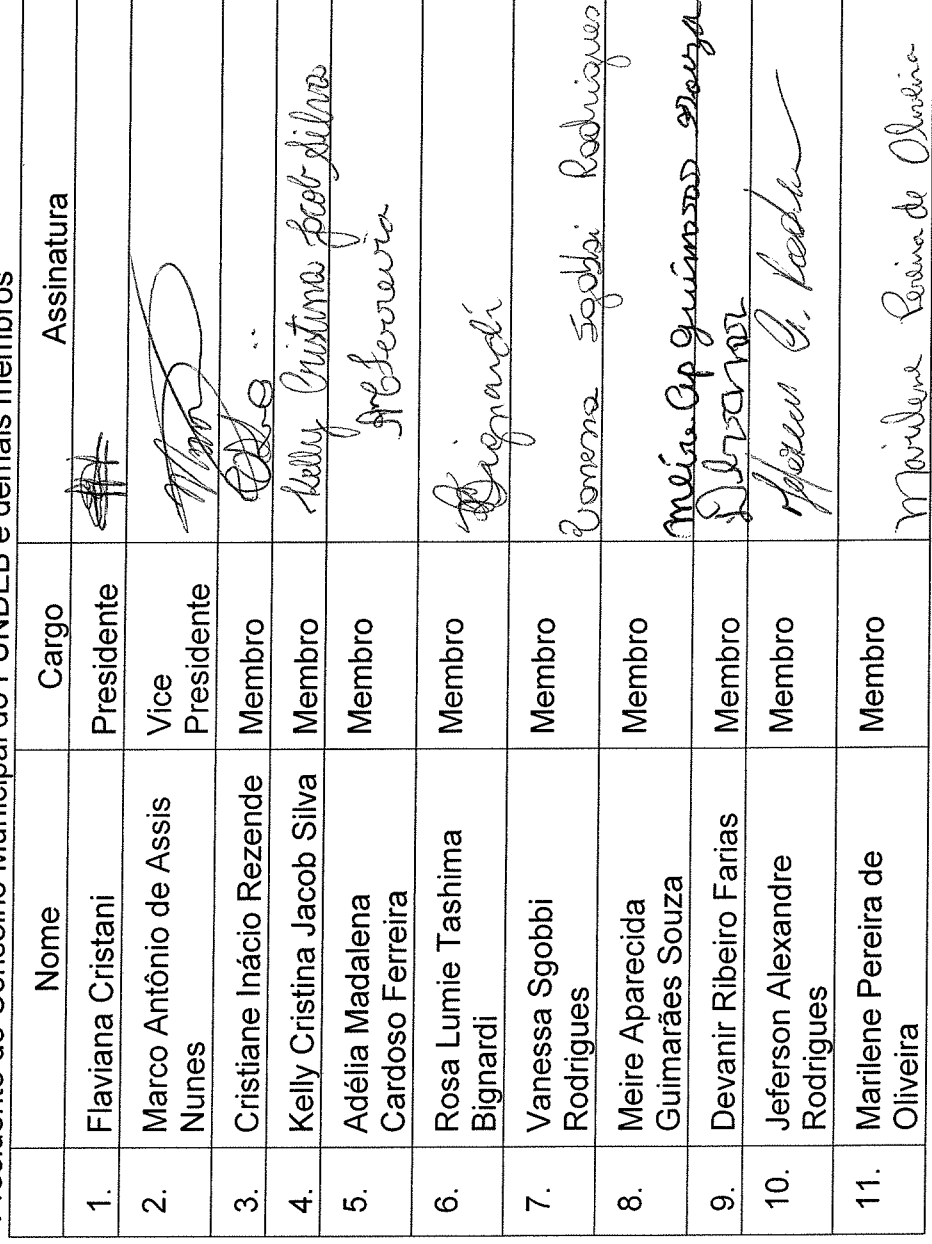 Presidente do Conselho Municipal do FUNDEB e demais membros
Nome Cargo Assinatura
1. Flaviana Cristani Presidente
2. Marco Antônio de Assis Nunes Vice Presidente
3. Cristiane Inácio Rezende Membro
4. Kelly Cristina Jacob Silva Membro Kelly Cristina Jacob Silva
5. Adélia Madalena Cardoso Ferreira Membro AMCFerreira
6. Rosa Lumie Tashima Bignardi Membro Bignardi
7. Vanessa Sgobbi Rodrigues Membro Vanessa Sgobbi Rodrigues
8. Meire Aparecida Guimarães Souza Membro Meire Ap Guimarães Souza
9. Devanir Ribeiro Farias Membro Devanir
10. Jeferson Alexandre Rodrigues Membro
11. Marilene Pereira de Oliveira Membro Marilene Pereira de Oliveira